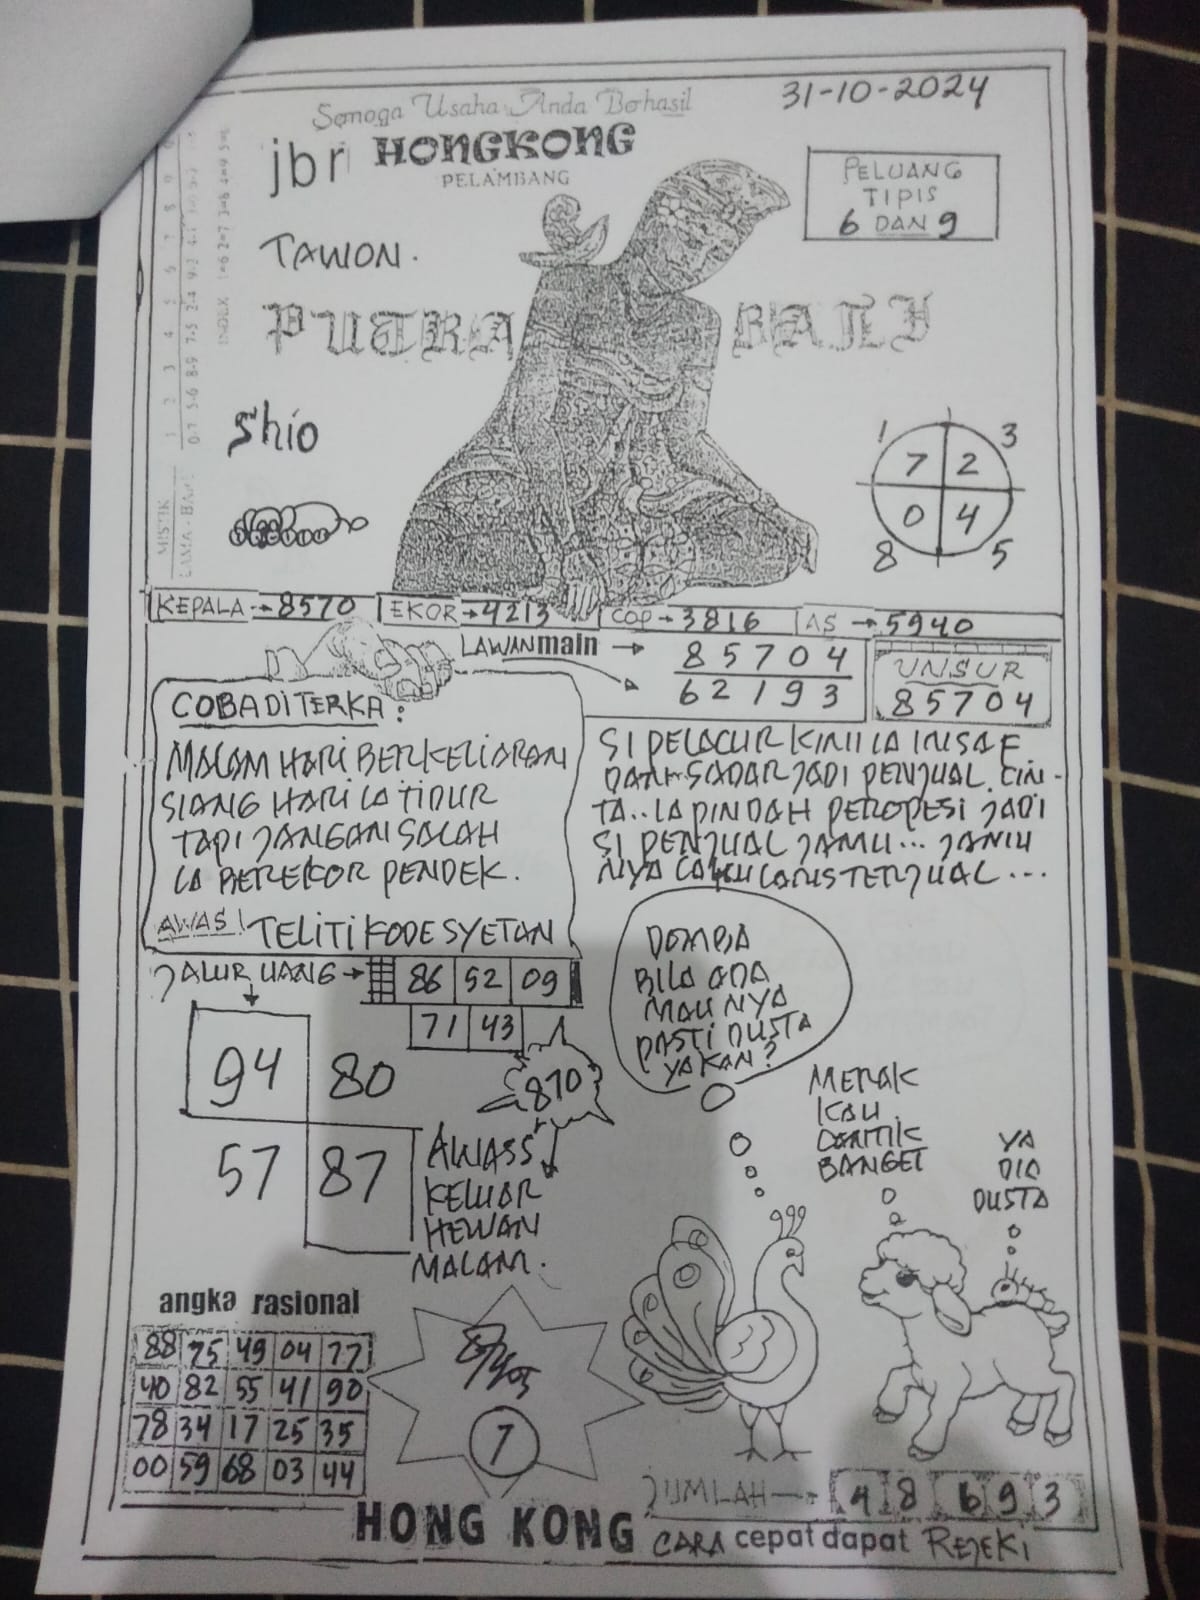 Semoga Usaha Anda Berhasil
31-10-2024
jbr HONGKONG
PELAMBANG
PELUANG
TIPIS
6 DAN 9
TAWON.
PUTRA BALI
Shio
1 3
7 2
0 4
8 5
MISTIK
LAMA - BARU
INDEX
KEPALA → 8570 EKOR → 4213 COP → 3816 AS → 5940
LAWAN main → 85704
62193
UNSUR
85704
COBA DITERKA:
MALAM HARI BERKELIARAN
SIANG HARI LA TIDUR
TAPI JANGAN SALAH
LA BEREKOR PENDEK.
AWAS! TELITI KODE SYETAN
SI PELACUR KINI LA INSAF
DAN SADAR JADI PENJUAL CIN-
TA.. LA PINDAH PEROPESI JADI
SI PENJUAL JAMU... JAMU
NYA LAKU LARIS TERJUAL...
JALUR UANG → 86 52 09
71 43
94 80
57 87
870
AWASS
KELUAR
HEWAN
MALAM.
DOMBA
BILA ADA
MAUNYA
PASTI DUSTA
YA KAN?
MERAK
KAU
CANTIK
BANGET
YA
DIA
DUSTA
angka rasional
88 75 49 04 77
40 82 55 41 90
78 34 17 25 35
00 59 68 03 44
7
JUMLAH → 48 693
HONG KONG CARA cepat dapat REJEKI